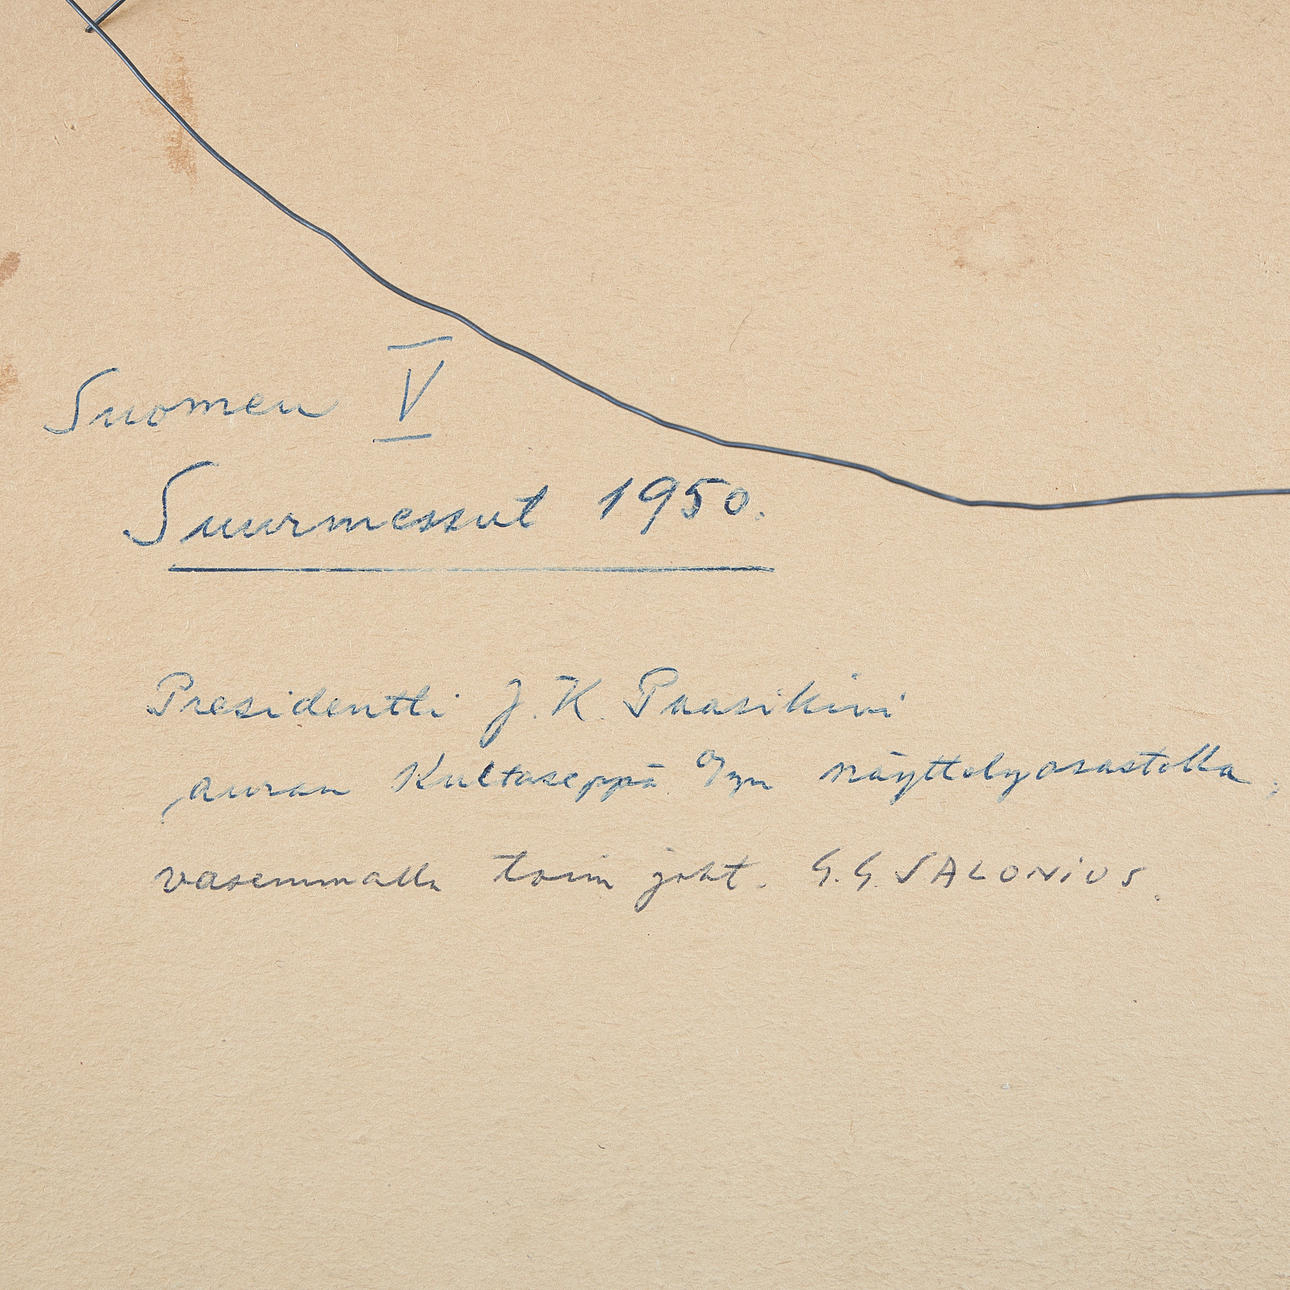 Suomen V
Suurmessut 1950.
Presidentti J. K. Paasikivi
auran Kultaseppä O/yn näyttelyosastolla,
vasemmalla toim joht. G.G. SALONIUS.